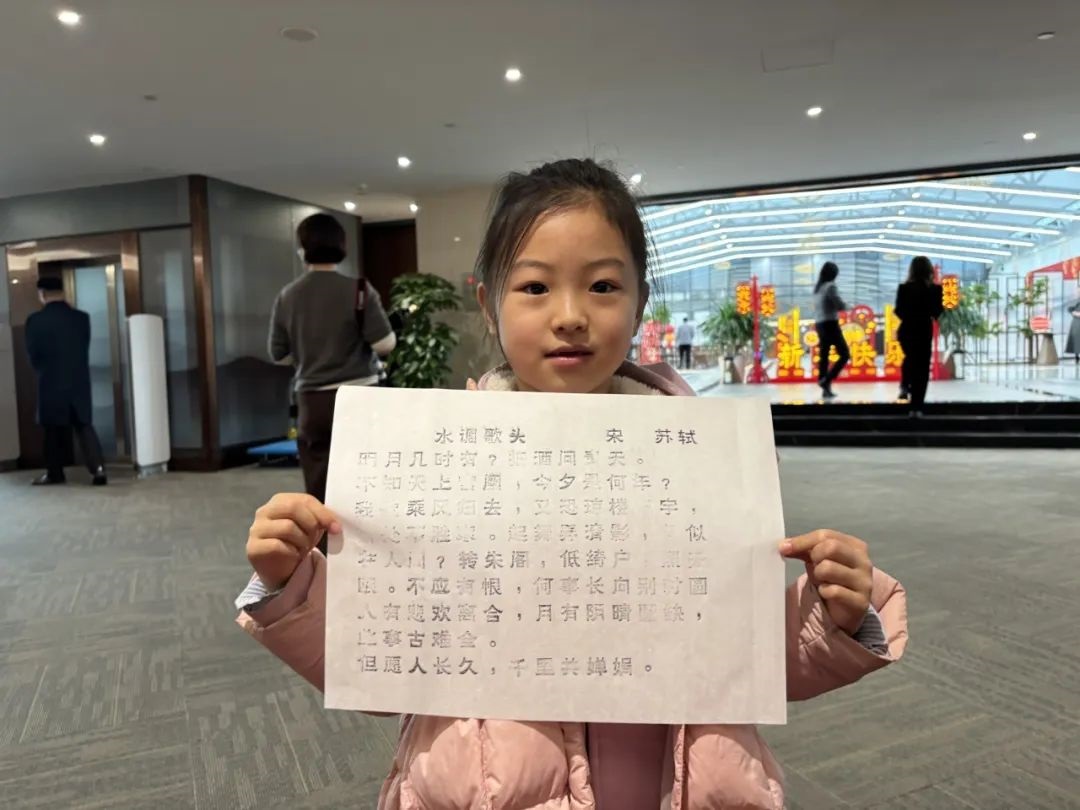 水调歌头 宋 苏轼
明月几时有？把酒问青天。
不知天上宫阙，今夕是何年？
我 乘风归去，又恐琼楼 宇，
处不胜寒。起舞弄清影， 似
在人间？转朱阁，低绮户 照无
眠。不应有恨，何事长向别时圆
人有悲欢离合，月有阴晴圆缺，
此事古难全。
但愿人长久，千里共婵娟。
新 快乐